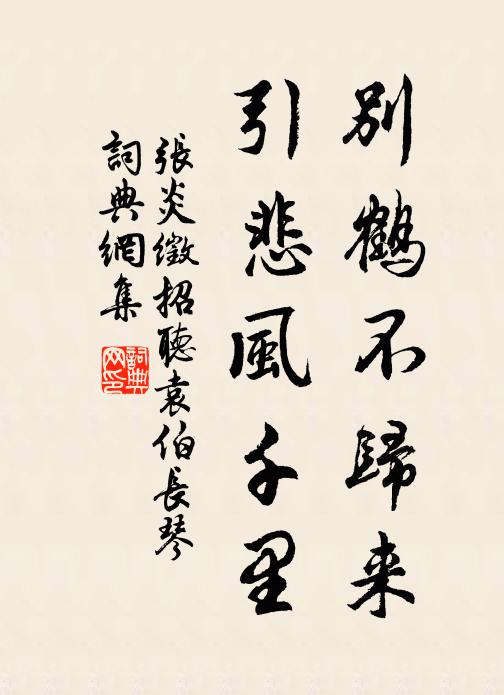 别鶴不歸来
引悲風千里
張炎徵招聽袁伯長琴
詞典網集
詞典网印